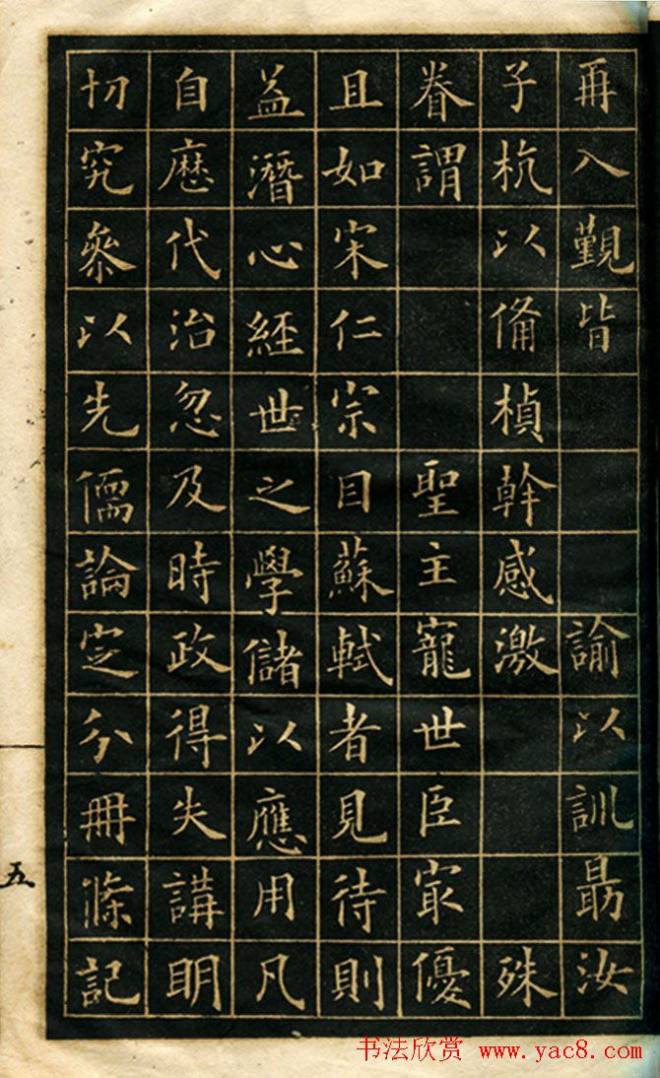 再入覲皆諭以訓勗汝
子杭以備楨幹感激殊
眷謂聖主寵世臣冣優
且如宋仁宗目蘇軾者見待則
益潛心經世之學儲以應用凡
自歷代治忽及時政得失講明
切究叅以先儒論定分冊條記
五
书法欣赏 www.yac8.com